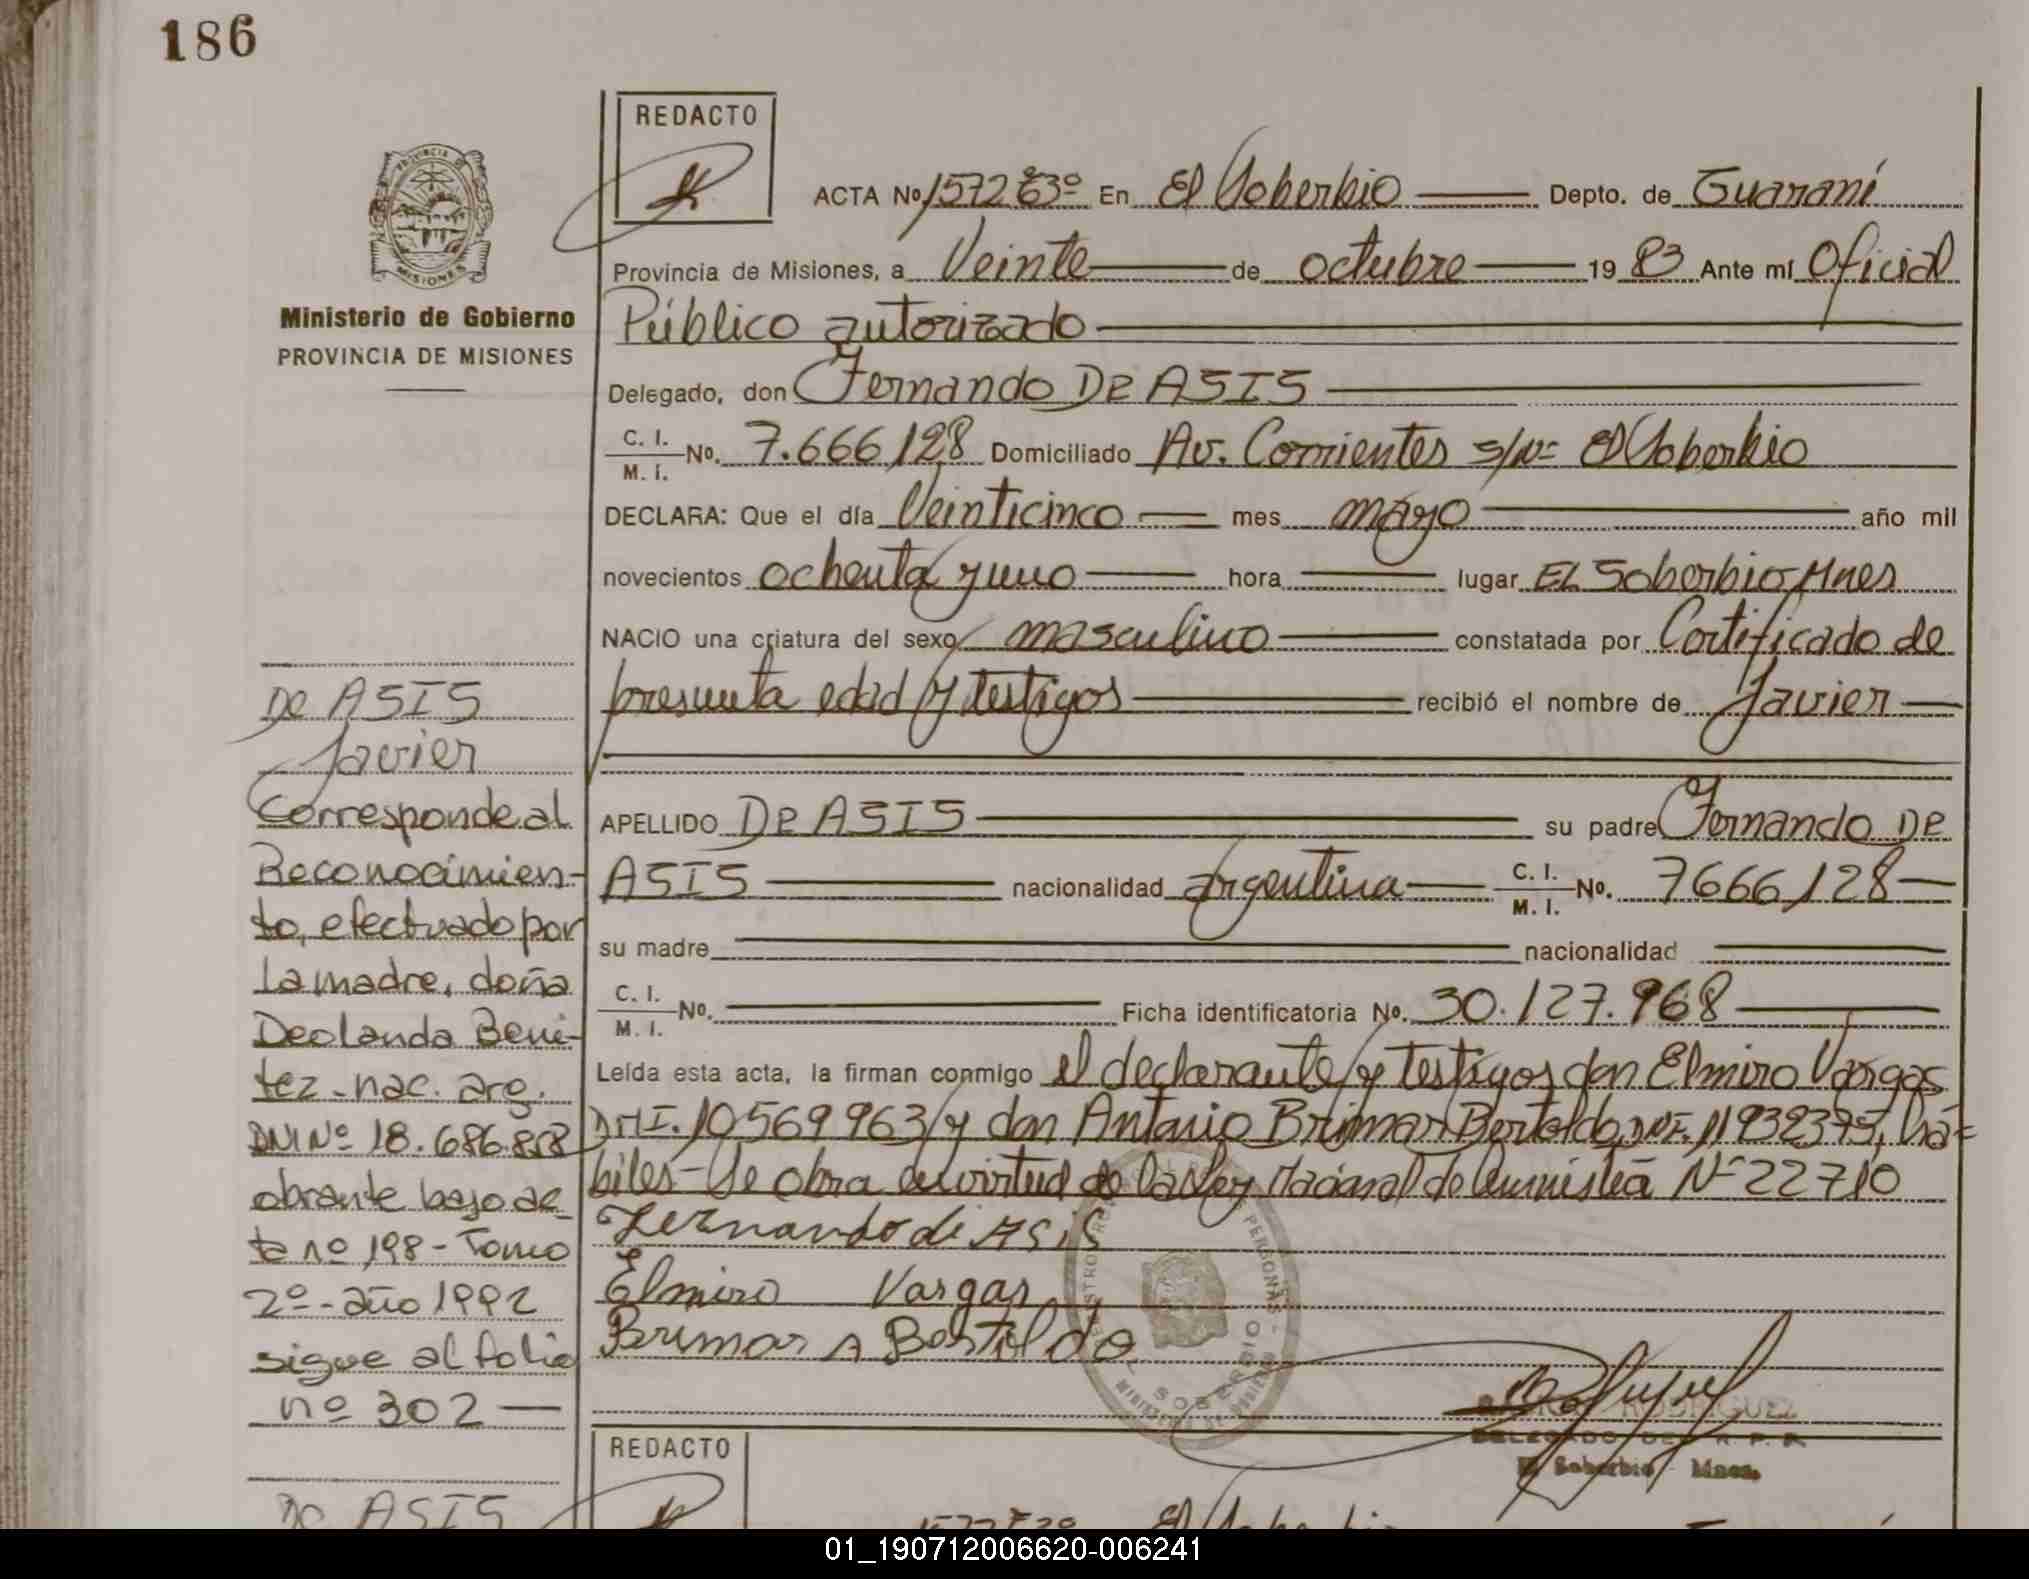 186
REDACTO
ACTA Nº 1572 63º En El Soberbio Depto. de Guaraní
Provincia de Misiones, a Veinte de octubre 19 83 Ante mí Oficial
Público autorizado
Delegado, don Fernando De ASIS
C. I.
M. I. Nº. 7.666128 Domiciliado Av. Corrientes s/Nº El Soberbio
DECLARA: Que el día Veinticinco mes mayo año mil
novecientos ochenta y uno hora lugar EL Soberbio Mnes
NACIO una criatura del sexo masculino constatada por Certificado de
presunta edad y testigos recibió el nombre de Javier
APELLIDO De ASIS su padre Fernando De
ASIS nacionalidad argentina C. I.
M. I. Nº. 7666128
su madre nacionalidad
C. I.
M. I. Nº. Ficha identificatoria Nº. 30.127.968
Leída esta acta, la firman conmigo el declarante y testigos don Elmiro Vargas
DNI. 10569963 y don Antonio Brimar Bertoldo, DNI. 11932375, há=
biles- Se obra en virtud de la Ley Nacional de Amnistía Nº 22710
Fernando de ASiS
Elmiro Vargas
Brimar A Bertoldo
PROVINCIA DE
MISIONES
Ministerio de Gobierno
PROVINCIA DE MISIONES
De ASIS
Javier
Corresponde al
Reconocimien-
to, efectuado por
la madre, doña
Deolanda Bení-
tez - nac. arg.
DNI Nº 18.686.858
obrante bajo ac-
ta nº 198 - Tomo
2º - año 1992
sigue al folio
nº 302
RODRIGUEZ
DELEGADO DEL R. P. P.
El Soberbio Mnes.
REDACTO
De ASIS
01_190712006620-006241